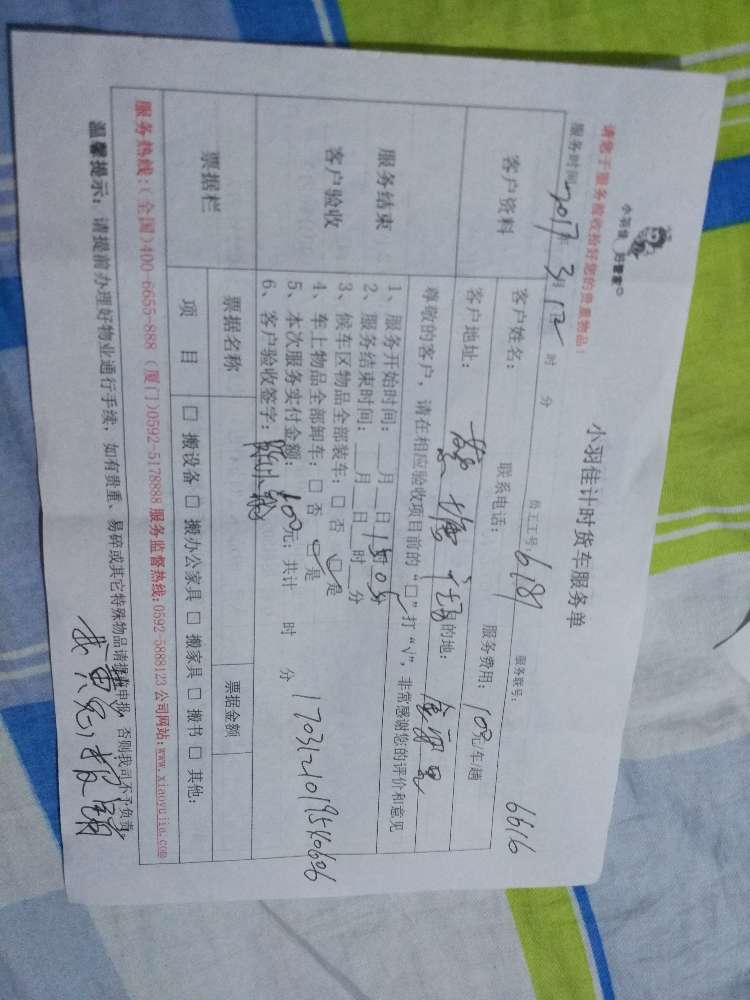 小羽佳 好管家
小羽佳计时货车服务单
请您于服务验收拾好您的贵重物品!
服务时间:2017年3月12日 时 分 员工工号:6181 服务联号: 6616
客户资料
客户姓名: 联系电话: 服务费用:100元/车/趟
客户地址: 目的地:
服务结束
客户验收
尊敬的客户,请在相应验收项目前的“□”打“√”,非常感谢您的评价和意见
1、服务开始时间:__月__日15时05分
2、服务结束时间:__月__日__时__分
3、候车区物品全部装车:□ 否 □ 是
4、车上物品全部卸车:□ 否 □ 是
5、本次服务实付金额:600元;共计 时 分
6、客户验收签字:
票据栏
票据名称 票据金额
项 目 □ 搬设备 □ 搬办公家具 □ 搬家具 □ 搬书 □ 其他:
服务热线:(全国)400-6655-888 (厦门)0592-5178888 服务监督热线:0592-5888123 公司网站:www.xiaoyujia.com
温馨提示:请提前办理好物业通行手续,如有贵重、易碎或其它特殊物品请提前申报,否则我司不予负责